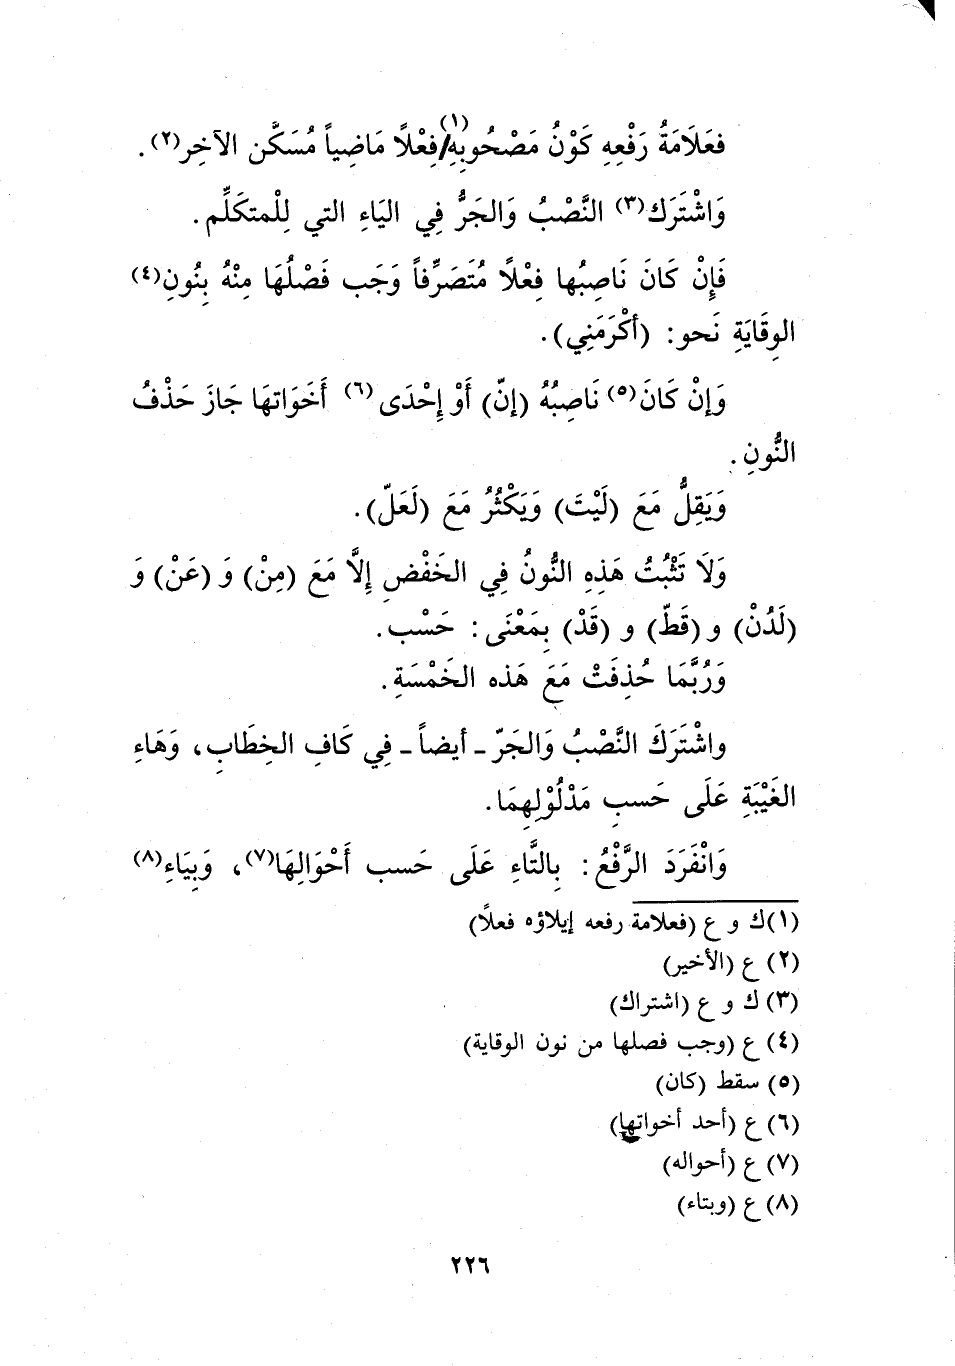 فعَلَامَةُ رَفْعِهِ كَوْنُ مَصْحُوبِهِ/(١)فِعْلًا مَاضِياً مُسَكَّن الآخِر(٢).
وَاشْتَرَك(٣) النَّصْبُ وَالجَرُّ فِي اليَاءِ التي لِلْمتكَلِّم.
فَإِنْ كَانَ نَاصِبُها فِعْلًا مُتَصَرِّفاً وَجَب فَصْلُهَا مِنْهُ بِنُونِ(٤)
الوِقَايَةِ نَحو: (أكْرَمَنِي).
وَإنْ كَانَ(٥) نَاصِبُهُ (إنّ) أَوْ إحْدَى(٦) أَخَوَاتهَا جَازَ حَذْفُ
النُّونِ.
وَيَقِلُّ مَعَ (لَيْتَ) وَيَكْثُرُ مَعَ (لَعَلّ).
وَلَا تَثْبُتُ هَذِهِ النُّونُ فِي الخَفْضِ إِلَّا مَعَ (مِنْ) وَ (عَنْ) وَ
(لَدُنْ) و (قَطّ) و (قَدْ) بِمَعْنَى: حَسْب.
وَرُبَّمَا حُذِفَتْ مَعَ هَذه الخَمْسَةِ.
واشْتَرَكَ النَّصْبُ وَالجَرّ ـ أيضاً ـ فِي كَافِ الخِطَابِ، وَهَاءِ
الغَيْبَةِ عَلَى حَسبِ مَدْلُوْلِهِمَا.
وَانْفَرَدَ الرَّفْعُ: بِالتَّاءِ عَلَى حَسب أَحْوَالِهَا(٧)، وَبِيَاءِ(٨)
(١) ك و ع (فعلامة رفعه إيلاؤه فعلًا)
(٢) ع (الأخير)
(٣) ك و ع (اشتراك)
(٤) ع (وجب فصلها من نون الوقاية)
(٥) سقط (كان)
(٦) ع (أحد أخواتها)
(٧) ع (أحواله)
(٨) ع (وبتاء)
٢٢٦